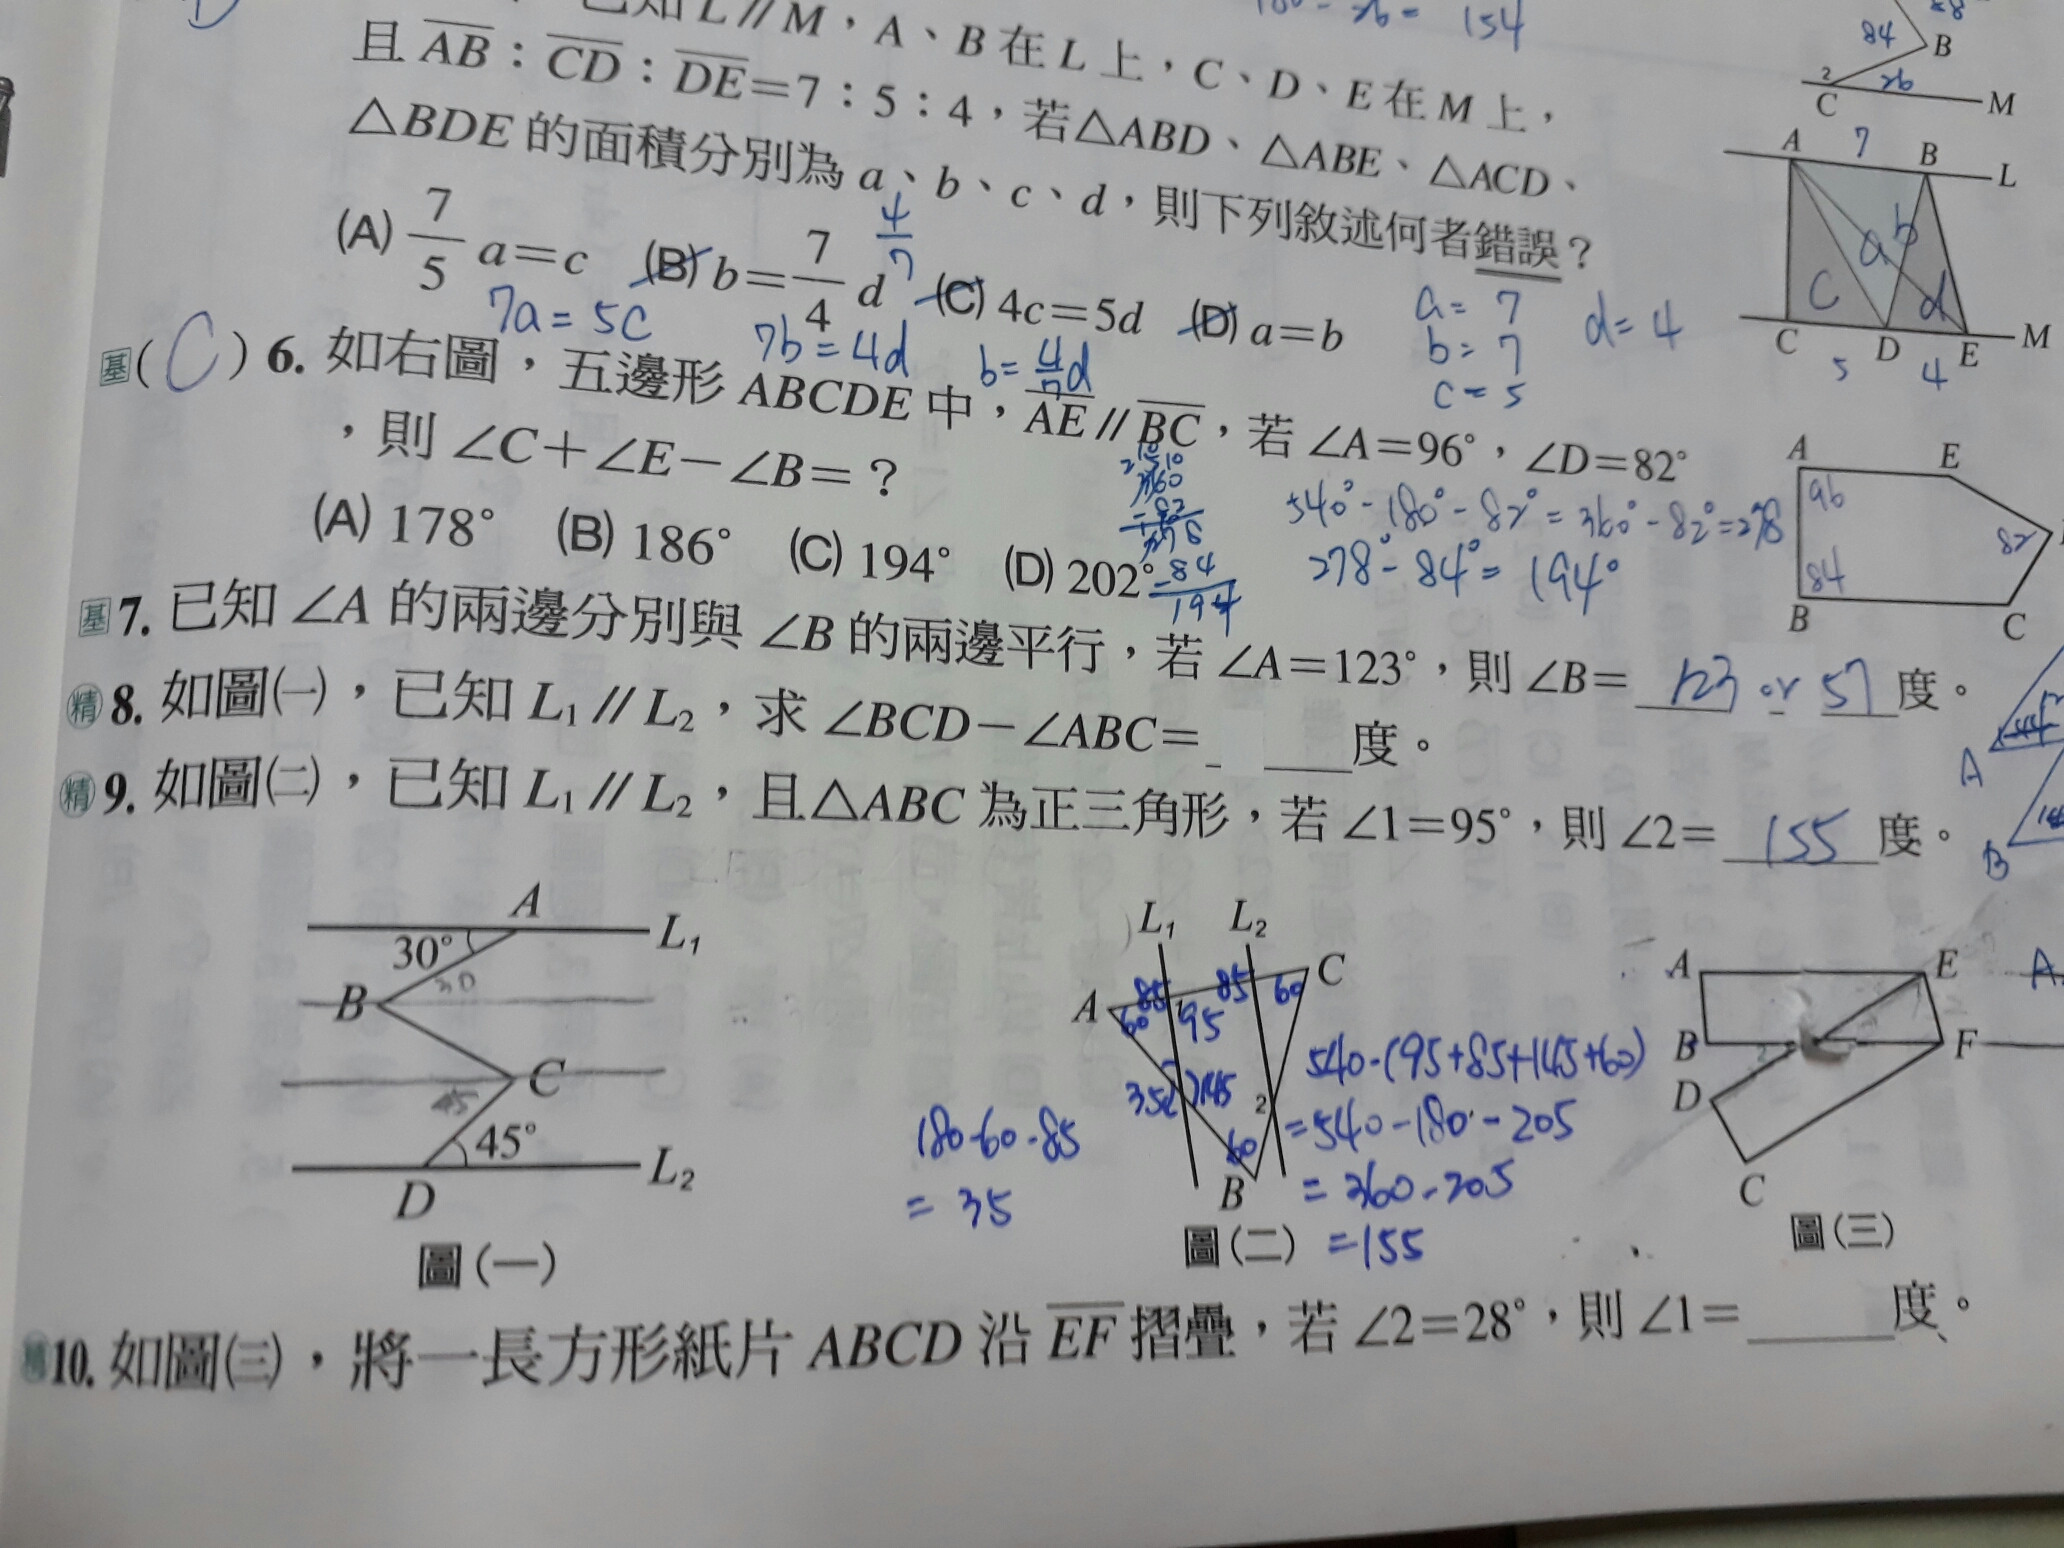 180-26= 154
已知L∥M，A、B在L上，C、D、E在M上，
且AB：CD：DE=7：5：4，若△ABD、△ABE、△ACD、
△BDE的面積分別為a、b、c、d，則下列敘述何者錯誤？
(A) 7/5 a=c (B) b=7/4 d (C) 4c=5d (D) a=b
4/7
7a=5c
7b=4d
b=4/7d
a=7
b=7
c=5
d=4
84
B
2
26
C
M
A
7
B
L
a
b
c
d
C
D
E
M
5
4
基(C) 6. 如右圖，五邊形ABCDE中，AE∥BC，若∠A=96°，∠D=82°
，則∠C+∠E-∠B=？
(A) 178° (B) 186° (C) 194° (D) 202°
360
-82
278
-84
194
540°-180°-82°=360°-82°=278
278°-84°=194°
A
E
96
82
84
B
C
基7. 已知∠A的兩邊分別與∠B的兩邊平行，若∠A=123°，則∠B= 123 or 57 度。
精8. 如圖(一)，已知L₁∥L₂，求∠BCD-∠ABC=____度。
精9. 如圖(二)，已知L₁∥L₂，且△ABC為正三角形，若∠1=95°，則∠2= 155 度。
A
B
A
30°
L₁
B
30
C
45°
L₂
D
圖(一)
L₁
L₂
A
C
85
85
60
60
1
95
35
145
2
60
B
圖(二)
180-60-85
=35
540-(95+85+145+60)
=540-180-205
=360-205
=155
A
E
B
2
F
D
C
圖(三)
A
精10. 如圖(三)，將一長方形紙片ABCD沿EF摺疊，若∠2=28°，則∠1=____度。